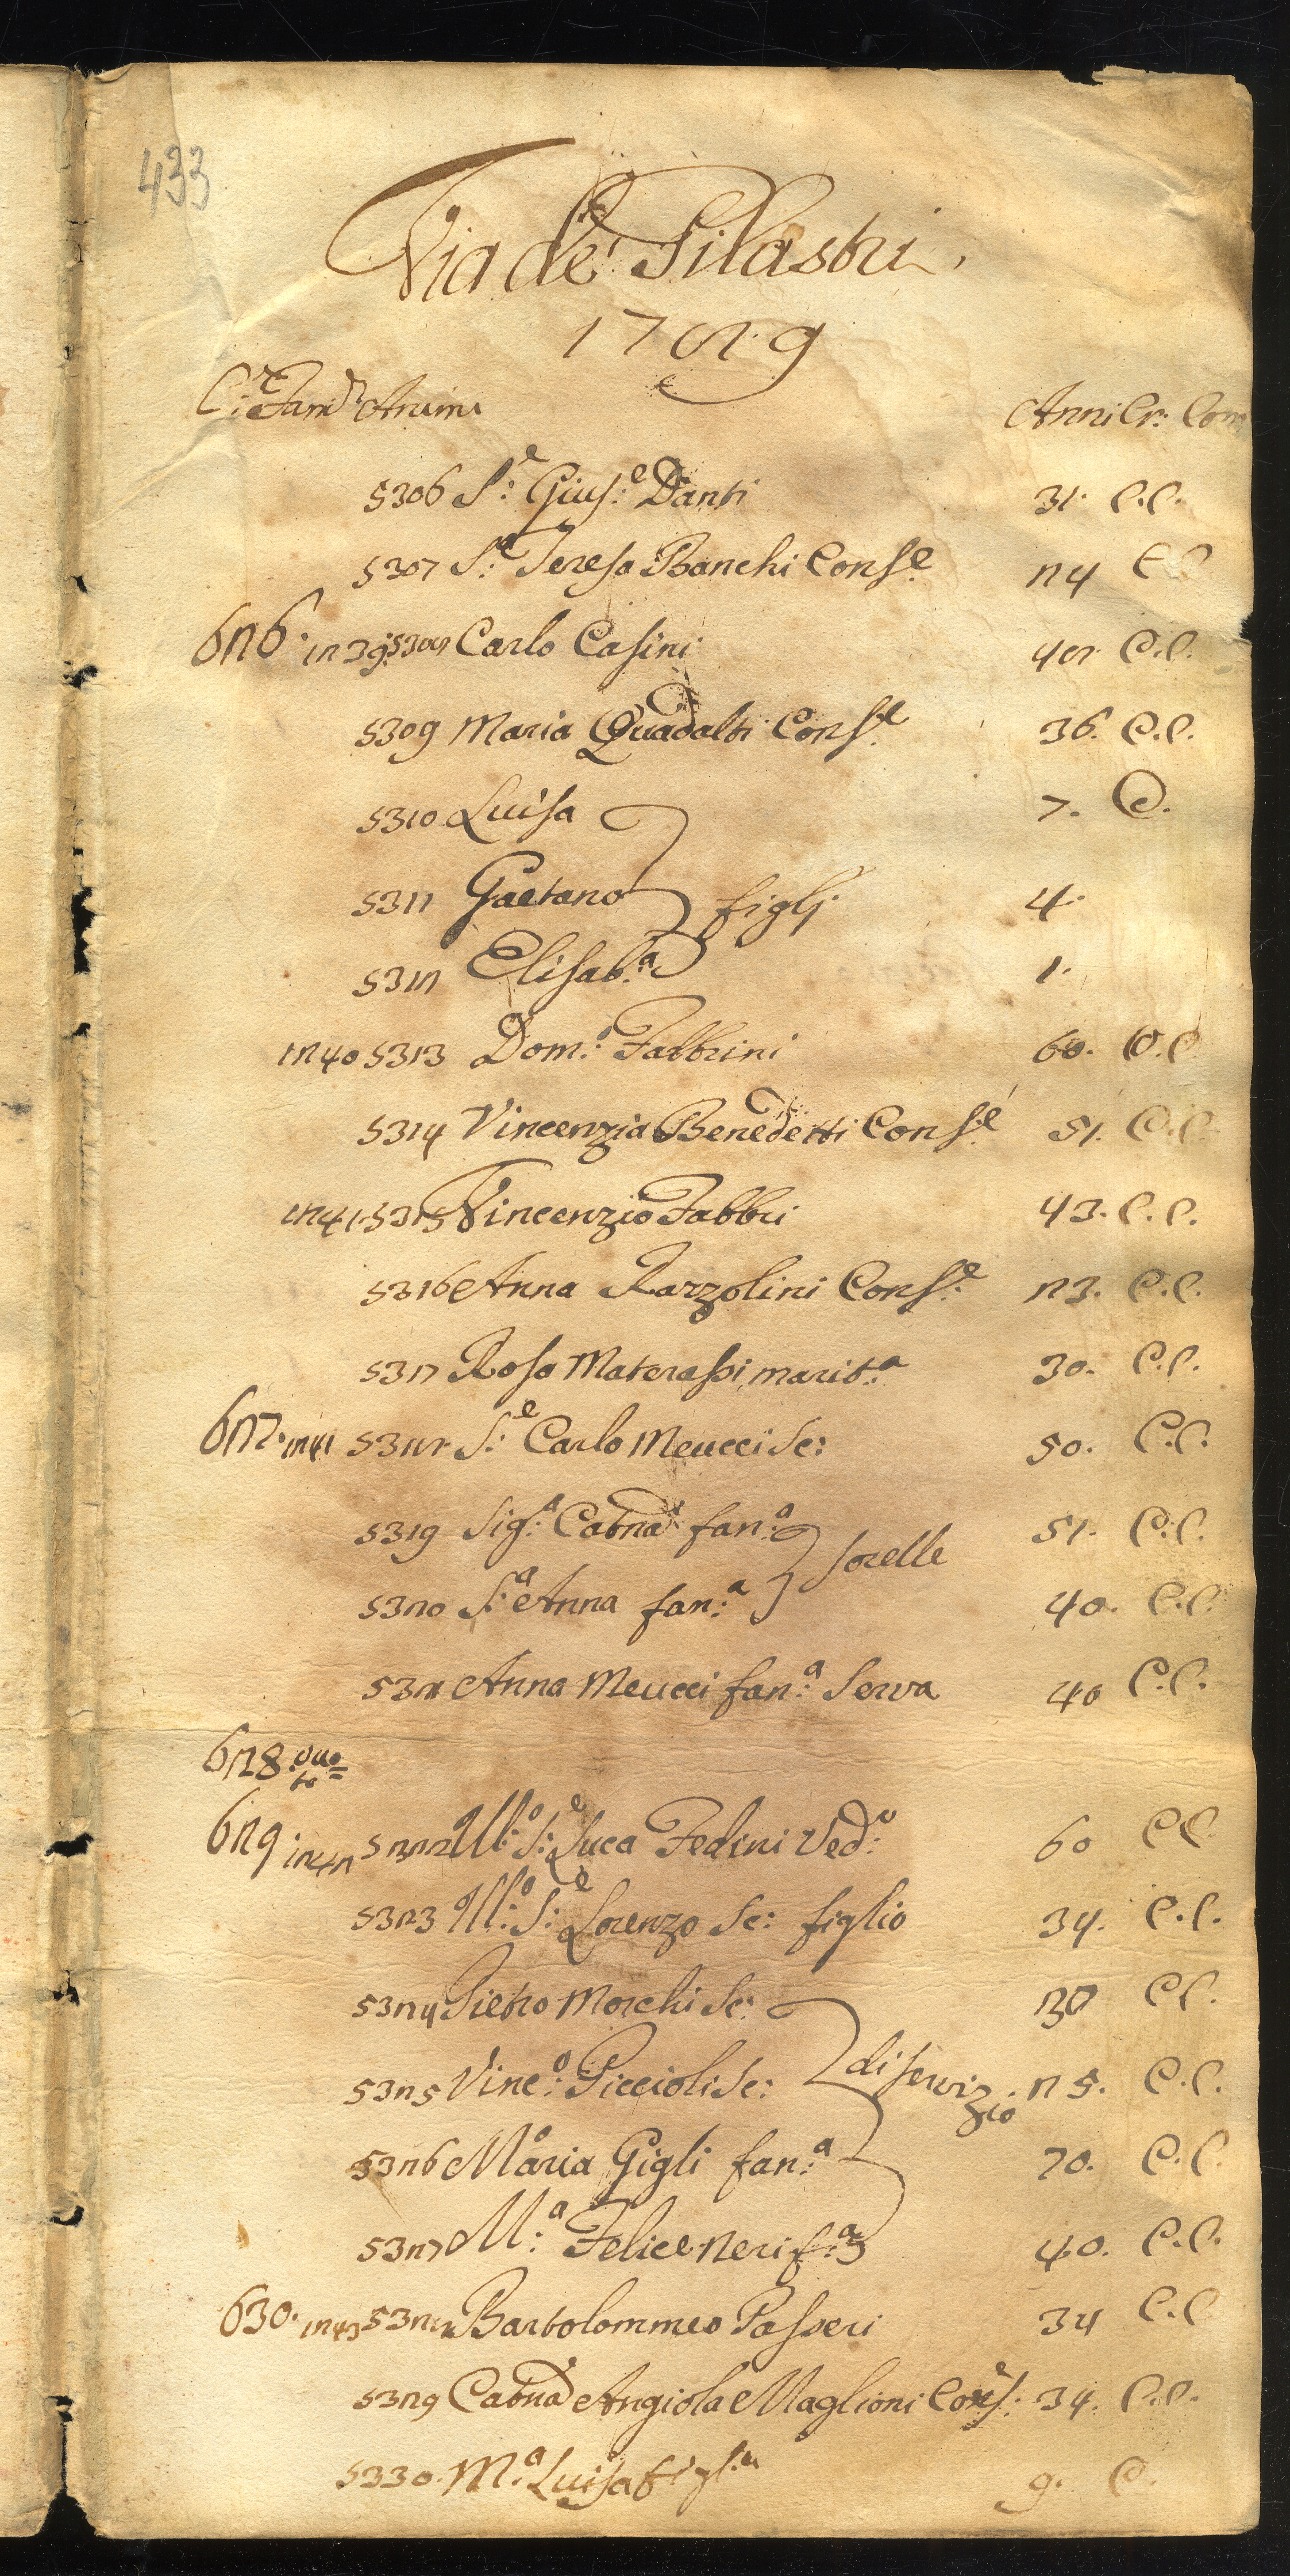 433
Via de' Pilastri.
1789
C:e Fam:e Anime Anni Cr: Com
5306 S:e Gius:e Danti 31. C.C.
5307 S:a Teresa Banchi Cons:e 24 C C
626. 1239. 5308 Carlo Casini 48. C.C.
5309 Maria Quadalti Cons:e 36. C.C.
5310 Luisa 7. C.
5311 Gaetano figlj. 4.
5312 Elisab:a 1.
1240 5313 Dom:o Fabbrini 60. C.C
5314 Vincenzia Benedetti Cons:e 51. C.C.
1241. 5315 Vincenzio Fabbri 43. C.C.
5316 Anna Razzolini Cons:e 23. C.C.
5317 Rosa Materassi marit:a 30. C.C.
627. 1241 5318. S:e Carlo Meucci Sc: 50. C.C.
5319 Sig:a Catna fan:a sorelle 51. C.C.
5320 S:a Anna fan:a 40. C.C.
5321 Anna Meucci fan:a Serva 40 C.C.
628. vuo=to
629 1242 5322 Ill:o S:e Luca Fedini Ved:o 60 C C
5323 Ill:o S:e Lorenzo Sc: figlio 34. C.C.
5324 Pietro Morchi Sc: C C.
5325 Vinc:o Piccioli Sc: di servizio 25. C.C.
5326 Maria Gigli fan:a 70. C.C.
5327 M:a Felice Neri f:a 40. C.C.
630. 1243 5328 Bartolommeo Passeri 34 C.C
5329 Catna Angiola Maglioni Cons:e 34. C.C.
5330. M:a Luisa figl:a 9. C.